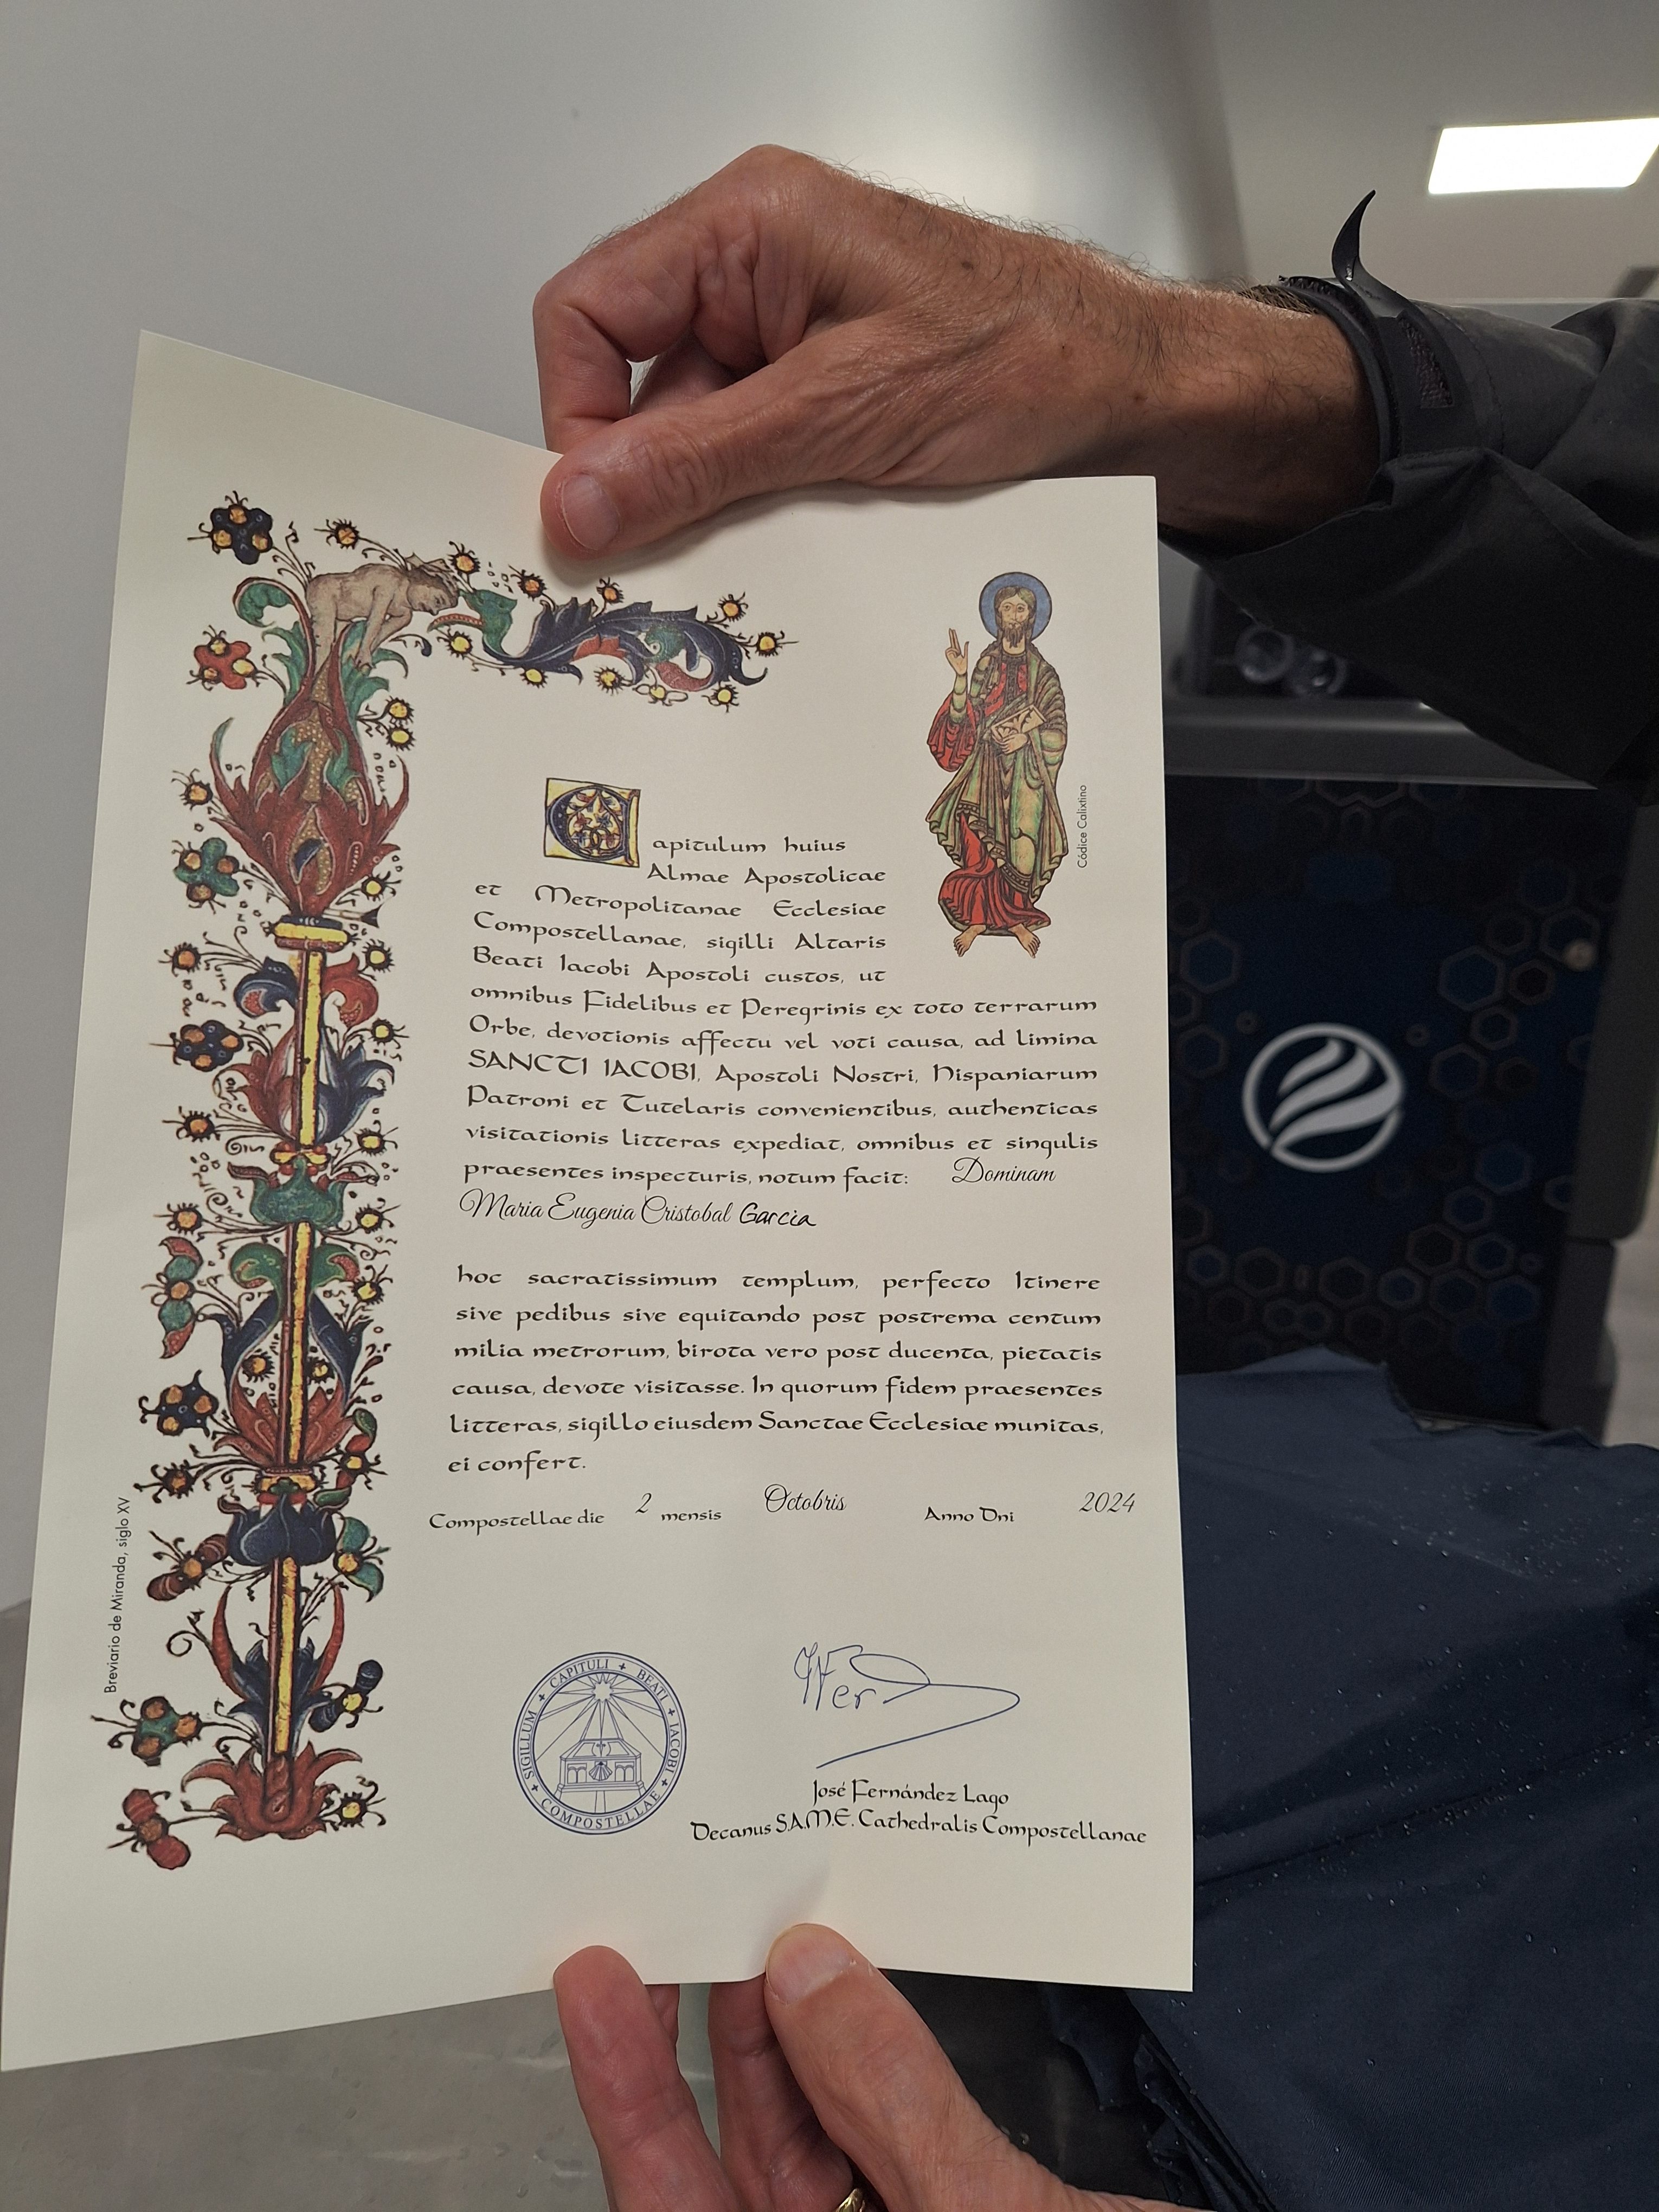 Capitulum huius
Almae Apostolicae
et Metropolitanae Ecclesiae
Compostellanae, sigilli Altaris
Beati Iacobi Apostoli custos, ut
omnibus Fidelibus et Peregrinis ex toto terrarum
Orbe, devotionis affectu vel voti causa, ad limina
SANCTI IACOBI, Apostoli Nostri, Hispaniarum
Patroni et Tutelaris convenientibus, authenticas
visitationis litteras expediat, omnibus et singulis
praesentes inspecturis, notum facit: Dominam
Maria Eugenia Cristobal Garcia
hoc sacratissimum templum, perfecto Itinere
sive pedibus sive equitando post postrema centum
milia metrorum, birota vero post ducenta, pietatis
causa, devote visitasse. In quorum fidem praesentes
litteras, sigillo eiusdem Sanctae Ecclesiae munitas,
ei confert.
Compostellae die 2 mensis Octobris Anno Dni 2024
SIGILLUM + CAPITULI + BEATI + IACOBI + COMPOSTELLAE +
José Fernández Lago
Decanus S.A.M.E. Cathedralis Compostellanae
Códice Calixtino
Breviario de Miranda, siglo XV